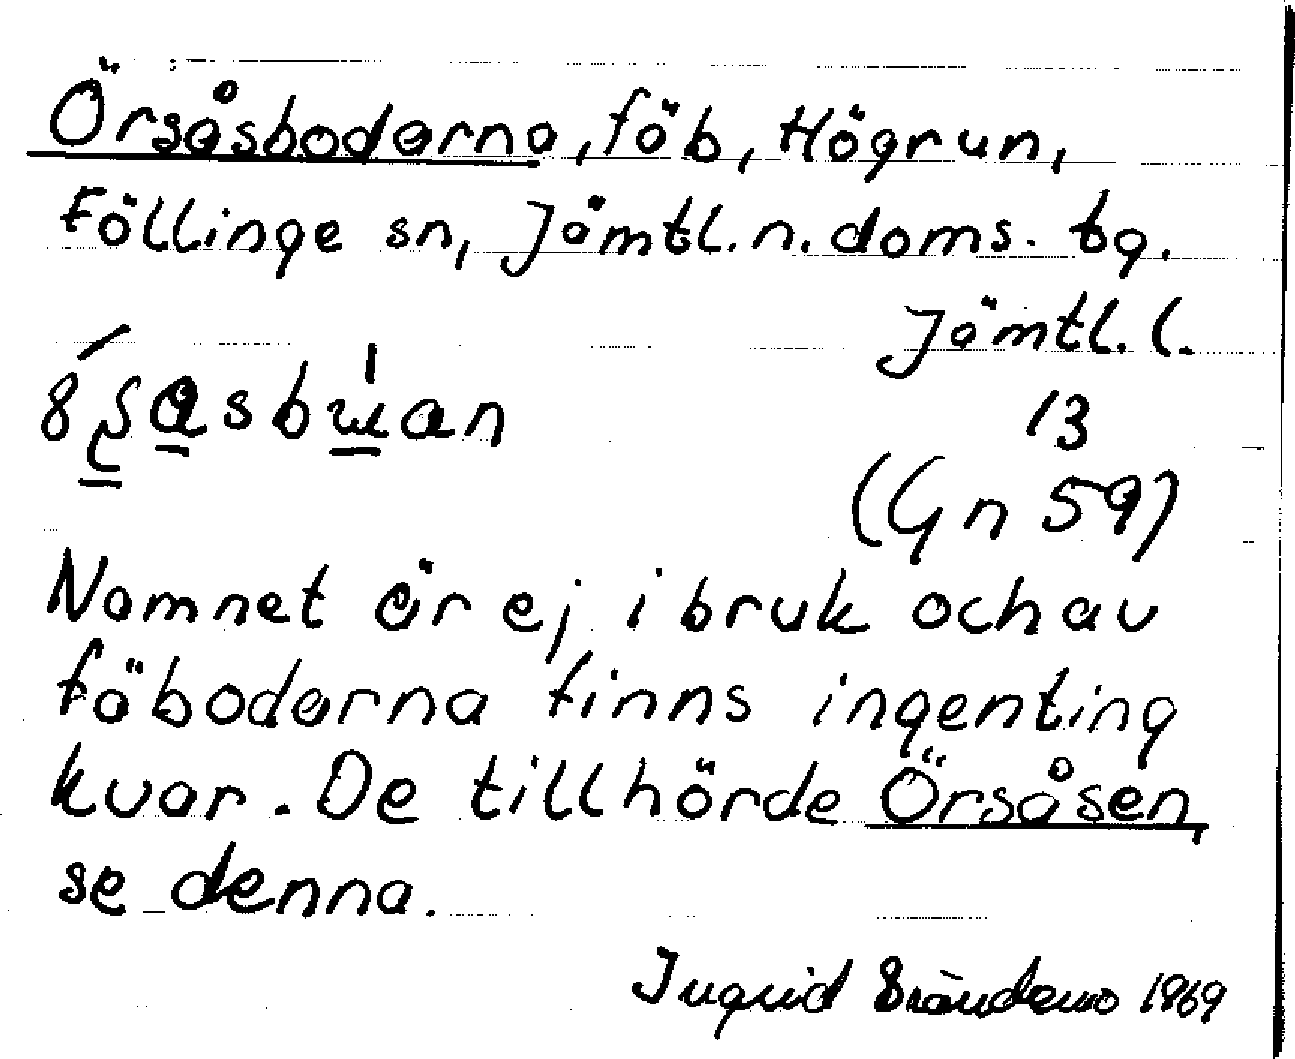 Örsåsboderna, fäb, Högrun,
Föllinge sn, Jämtl. n. doms. tg.
Jämtl. l.
13
(Gn 59)
Namnet är ej i bruk och av
fäboderna finns ingenting
kvar. De tillhörde Örsåsen,
se denna.
Ingrid Brändemo 1969